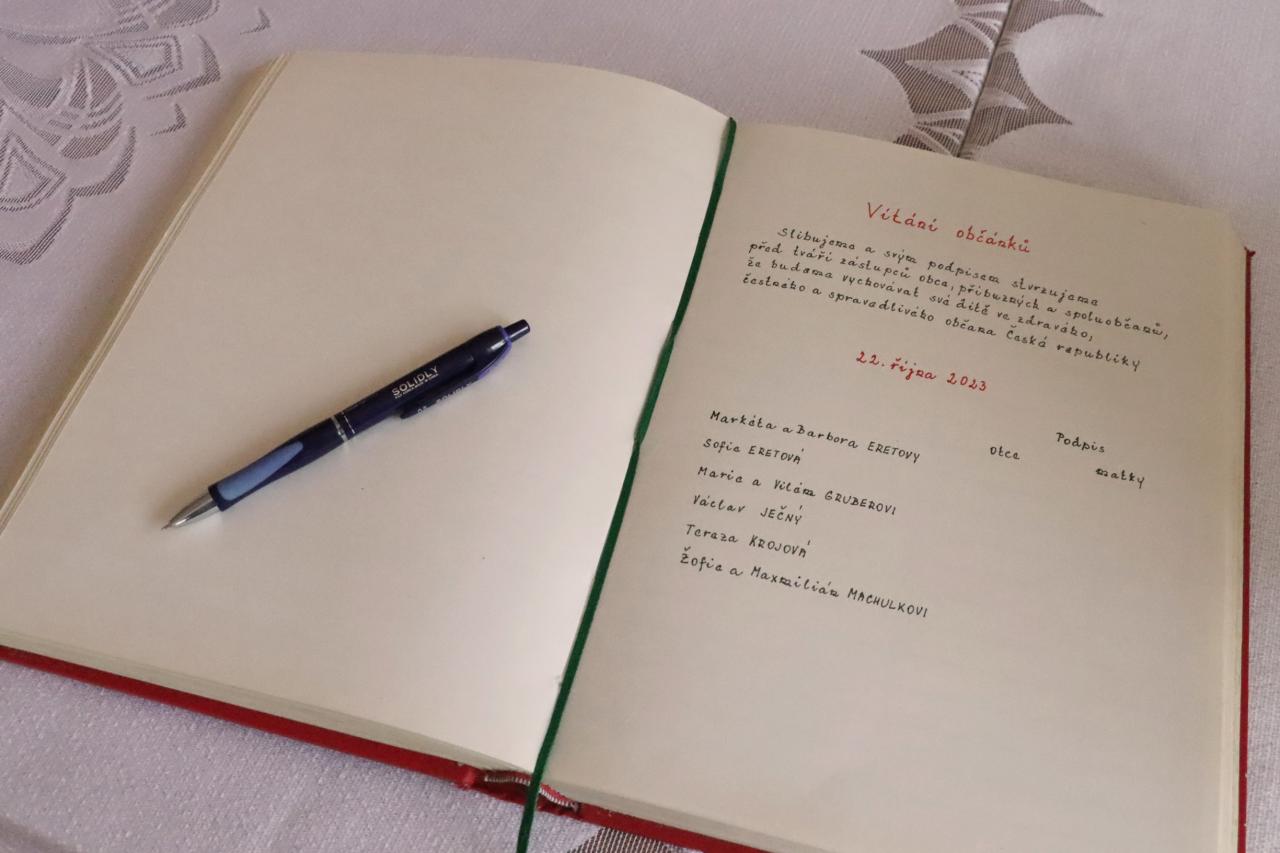 SOLIDLY
Vítání občánků
Slibujeme a svým podpisem stvrzujeme
před tváří zástupců obce, příbuzných a spoluobčanů,
že budeme vychovávat své dítě ve zdravého,
čestného a spravedlivého občana České republiky
22. října 2023
Podpis
Markéta a Barbora ERETOVY otce matky
Sofie ERETOVÁ
Marie a Vilém GRUBEROVI
Václav JEČNÝ
Tereza KROJOVÁ
Žofie a Maxmilián MACHULKOVI